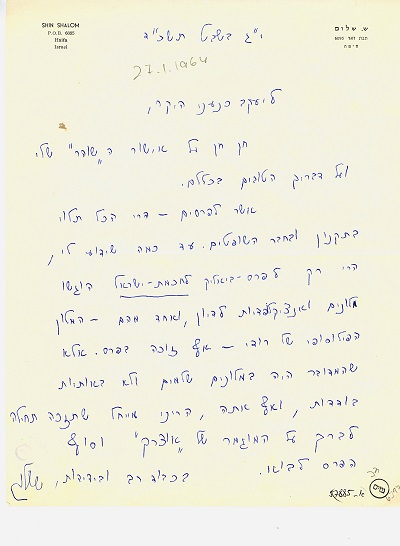 SHIN SHALOM
P.O.B. 6095
Haifa
Israel
ש. שלום
תבת דאר 6095
חיפה
י"ג בשבט תשכ"ד
27.1.1964
ליעקב כנעני היקר,
חן חן על אישור ה"שודר" שלי
ועל דבריך הטובים בכללם.
אשר לפרסים – הרי הכל תלוי
בתקנון ובחבר השופטים. עד כמה שידוע לי,
הרי רק לפרס-ביאליק לחכמת-ישראל הוגשו
מלונים ואנציקלופדיות לדיון, ואחד מהם – המלון
הפילוסופי של – אף זוכה בפרס. אלא
שהמדובר היה במלונים שלמים ולא באותיות
בודדות, ואף אתה, הריני מיחל שתזכה תחילה
לברך על המוגמר של "אוצרך" וסוף
הפרס לבוא.
בכבוד רב ובידידות,